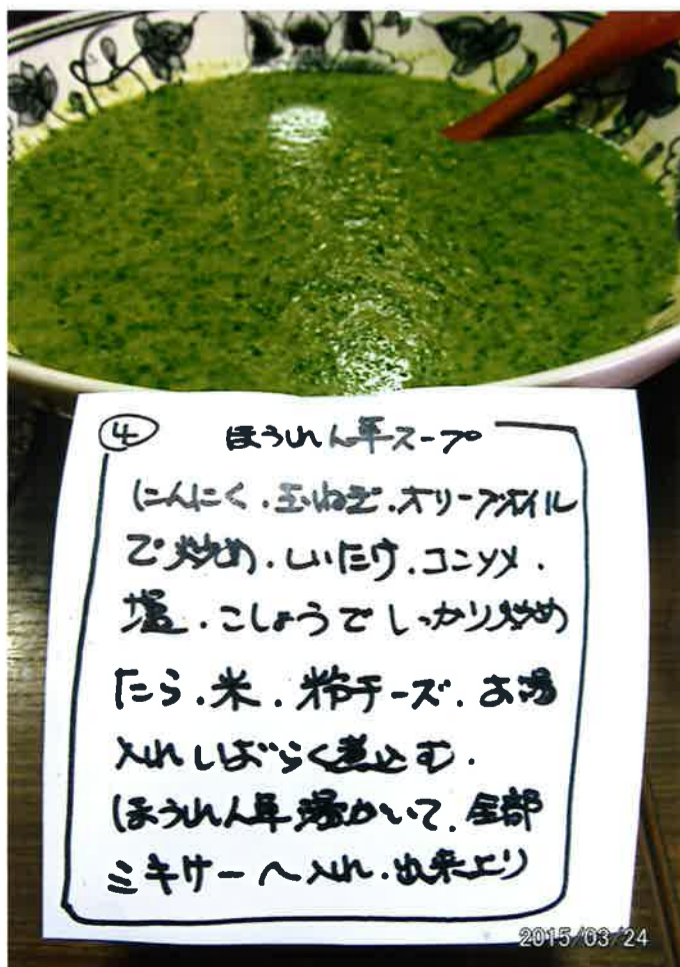 ④ ほうれん草スープ
にんにく.玉ねぎ.オリーブオイル
で炒め.しいたけ.コンソメ.
塩.こしょうでしっかり炒め
たら.米.粉チーズ.お湯
入れしばらく煮込む.
ほうれん草湯がいて.全部
ミキサーへ入れ.出来上り
2015/03/24